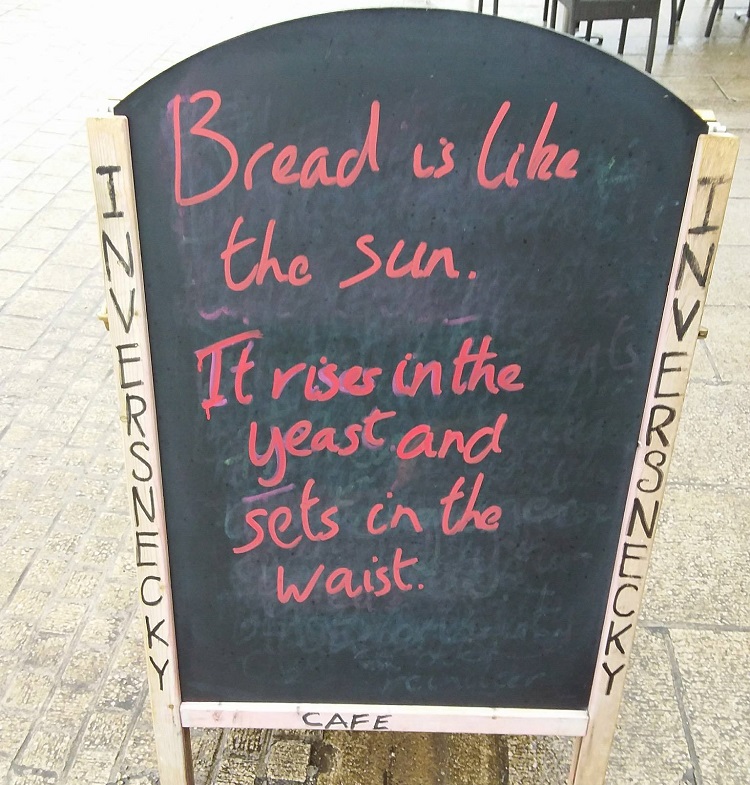 Bread is like
the sun.
It rises in the
yeast and
sets in the
waist.
INVERSNECKY
INVERSNECKY
CAFE